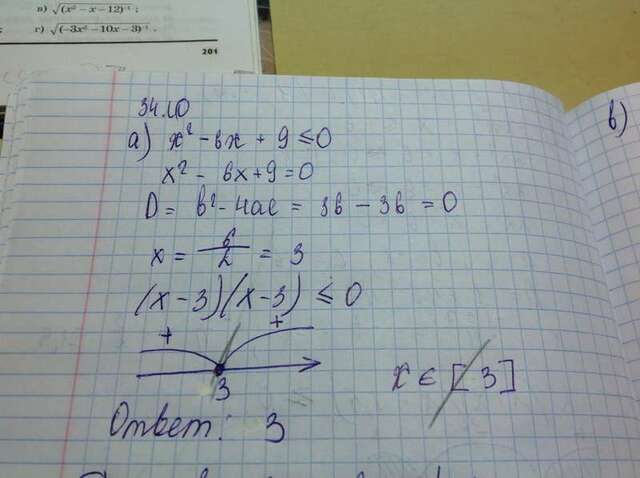 в) √(x² − x − 12)⁻¹ ;
г) √(−3x² − 10x − 3)⁻¹ .
201
34.10
а) x² - 6x + 9 ≤ 0
в)
x² - 6x + 9 = 0
D = b² - 4ac = 36 - 36 = 0
x = 6/2 = 3
(x - 3)(x - 3) ≤ 0
+ +
3
x ∈ [3]
Ответ: 3